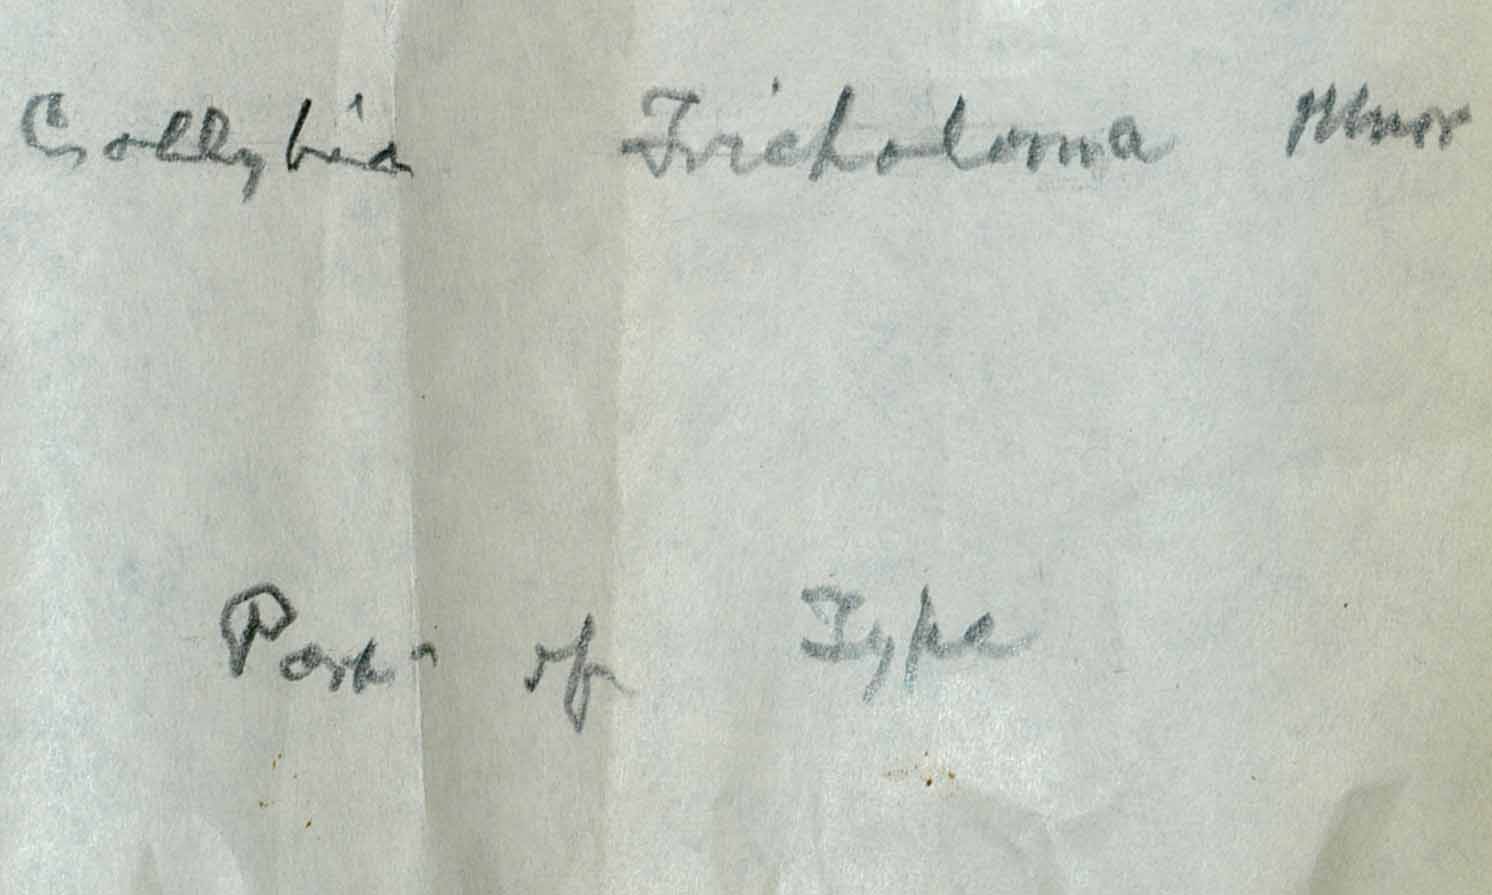 Collybia Tricholoma Murr
Part of Type